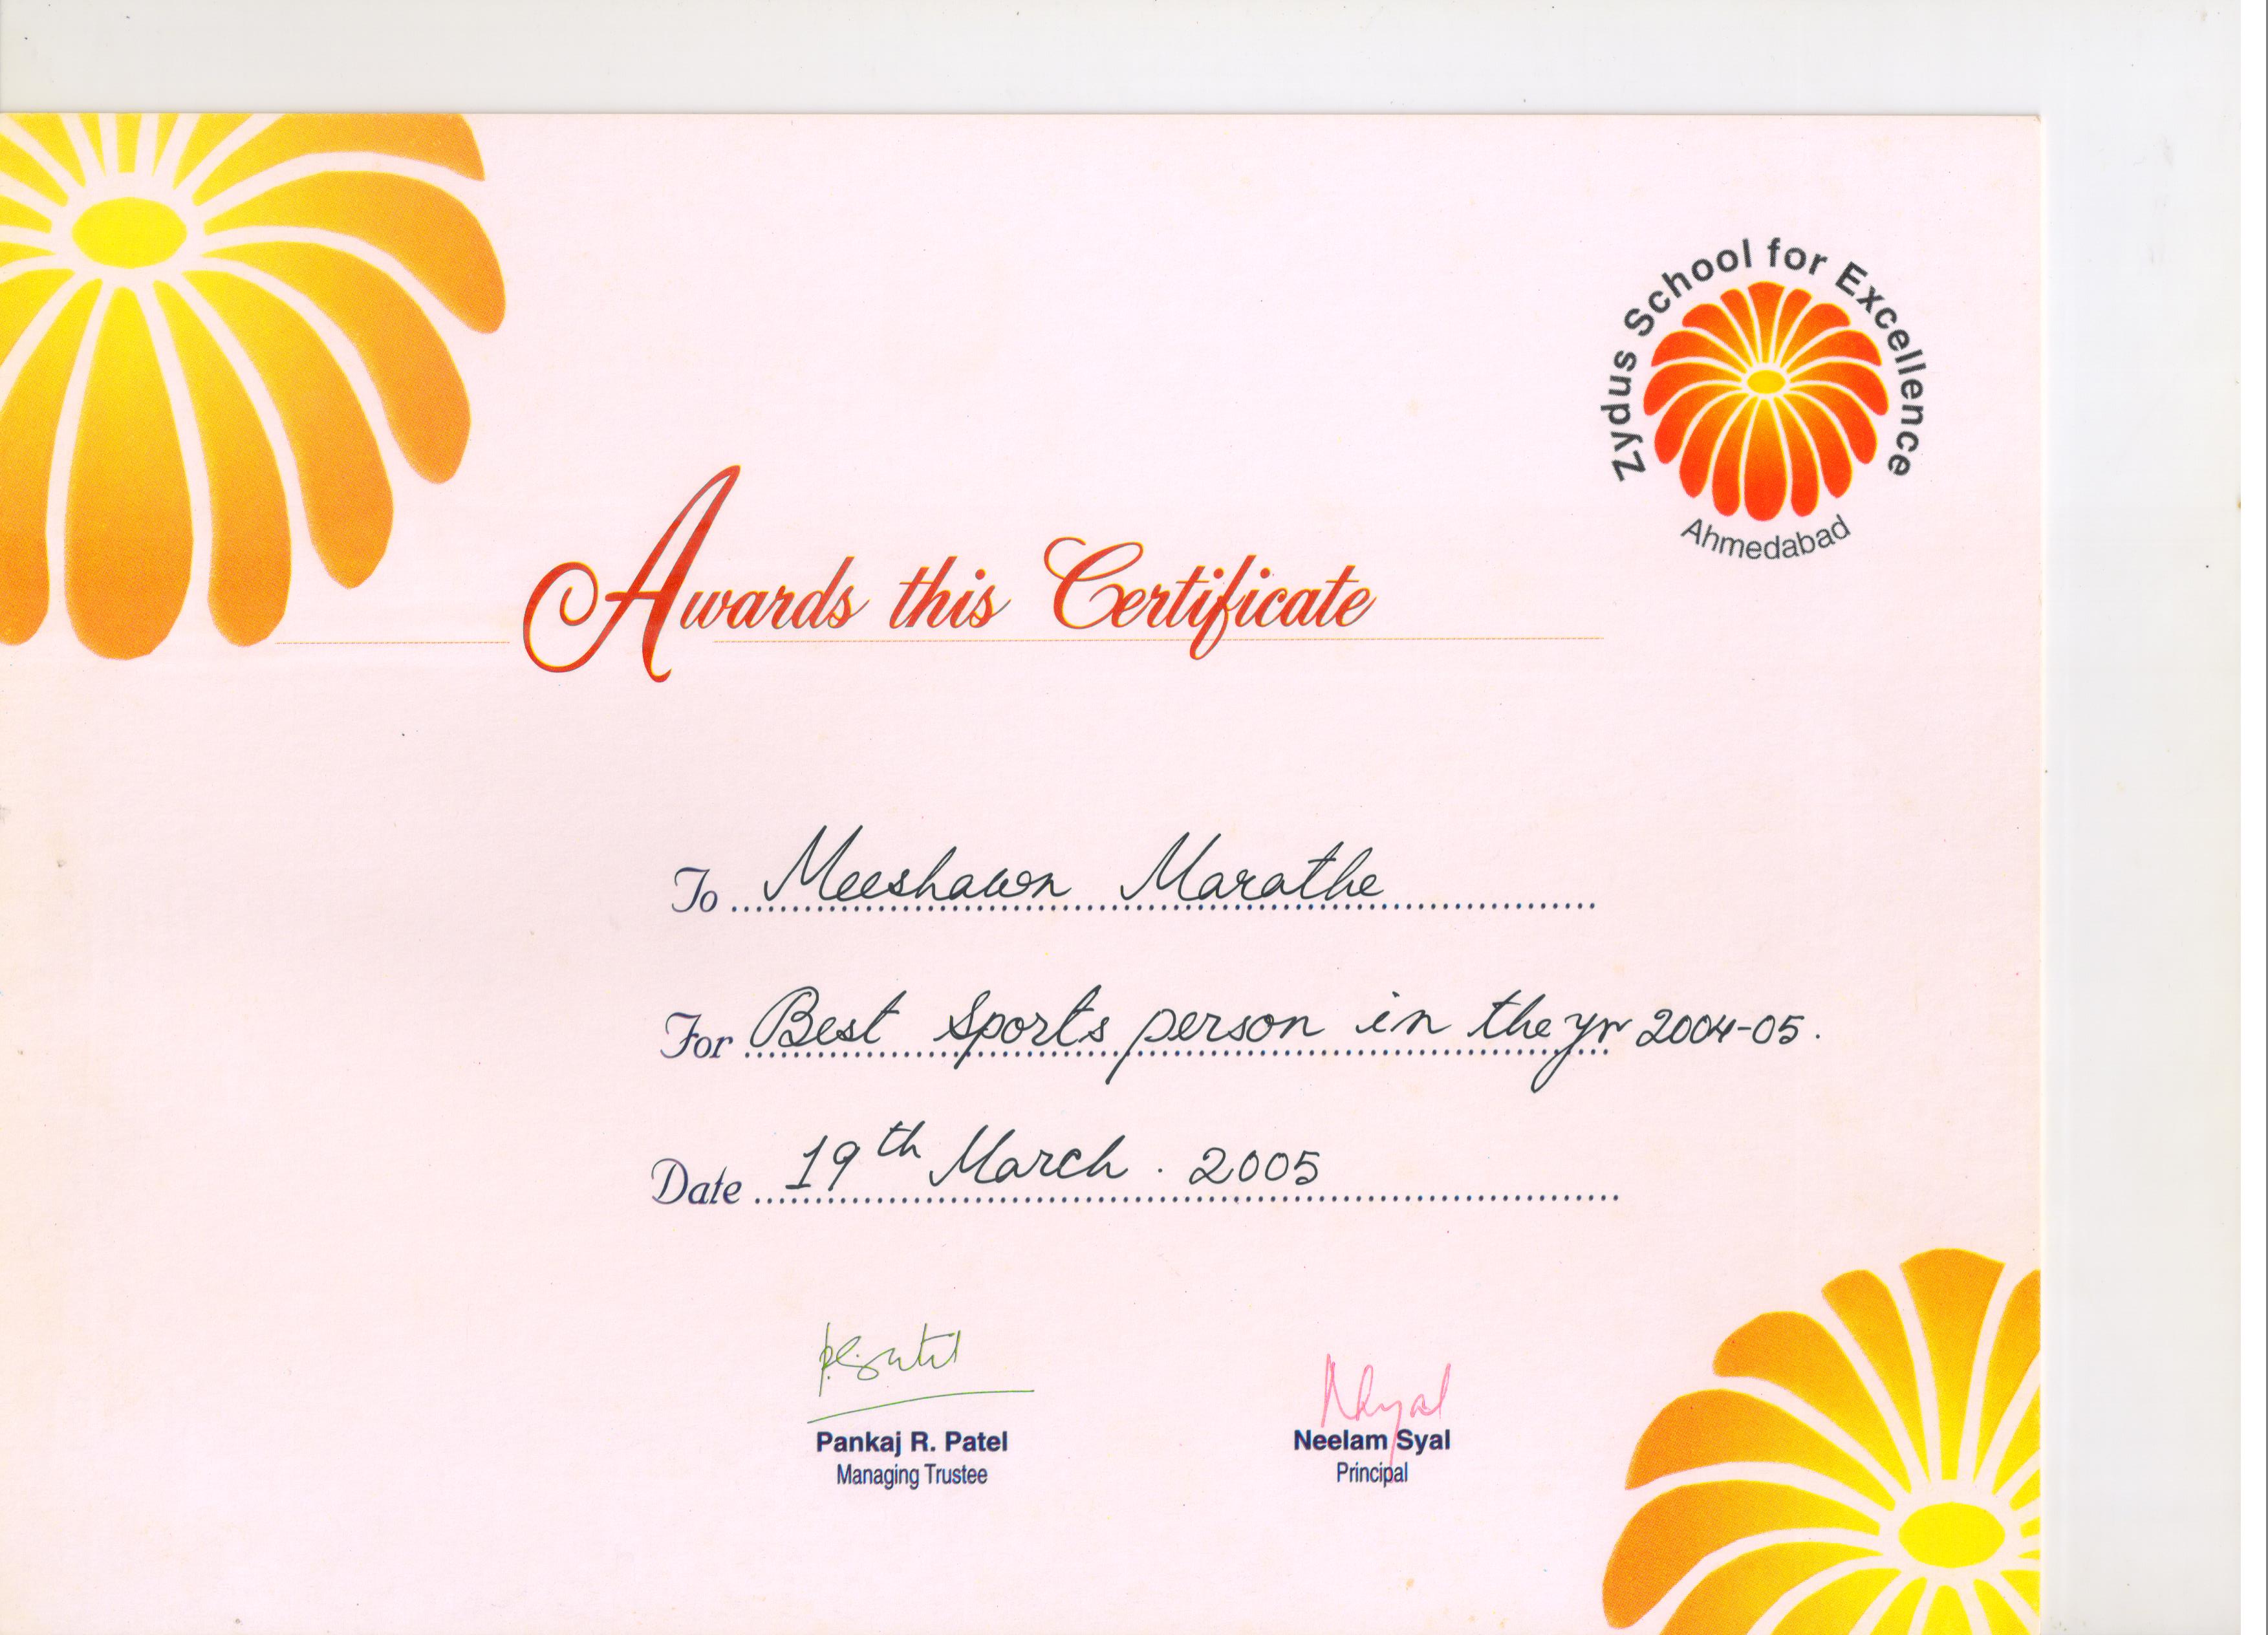 Zydus School for Excellence
Ahmedabad
Awards this Certificate
To Meeshawn Marathe
For Best Sports person in the yr 2004-05.
Date 19th March . 2005
Pankaj R. Patel
Managing Trustee
Neelam Syal
Principal